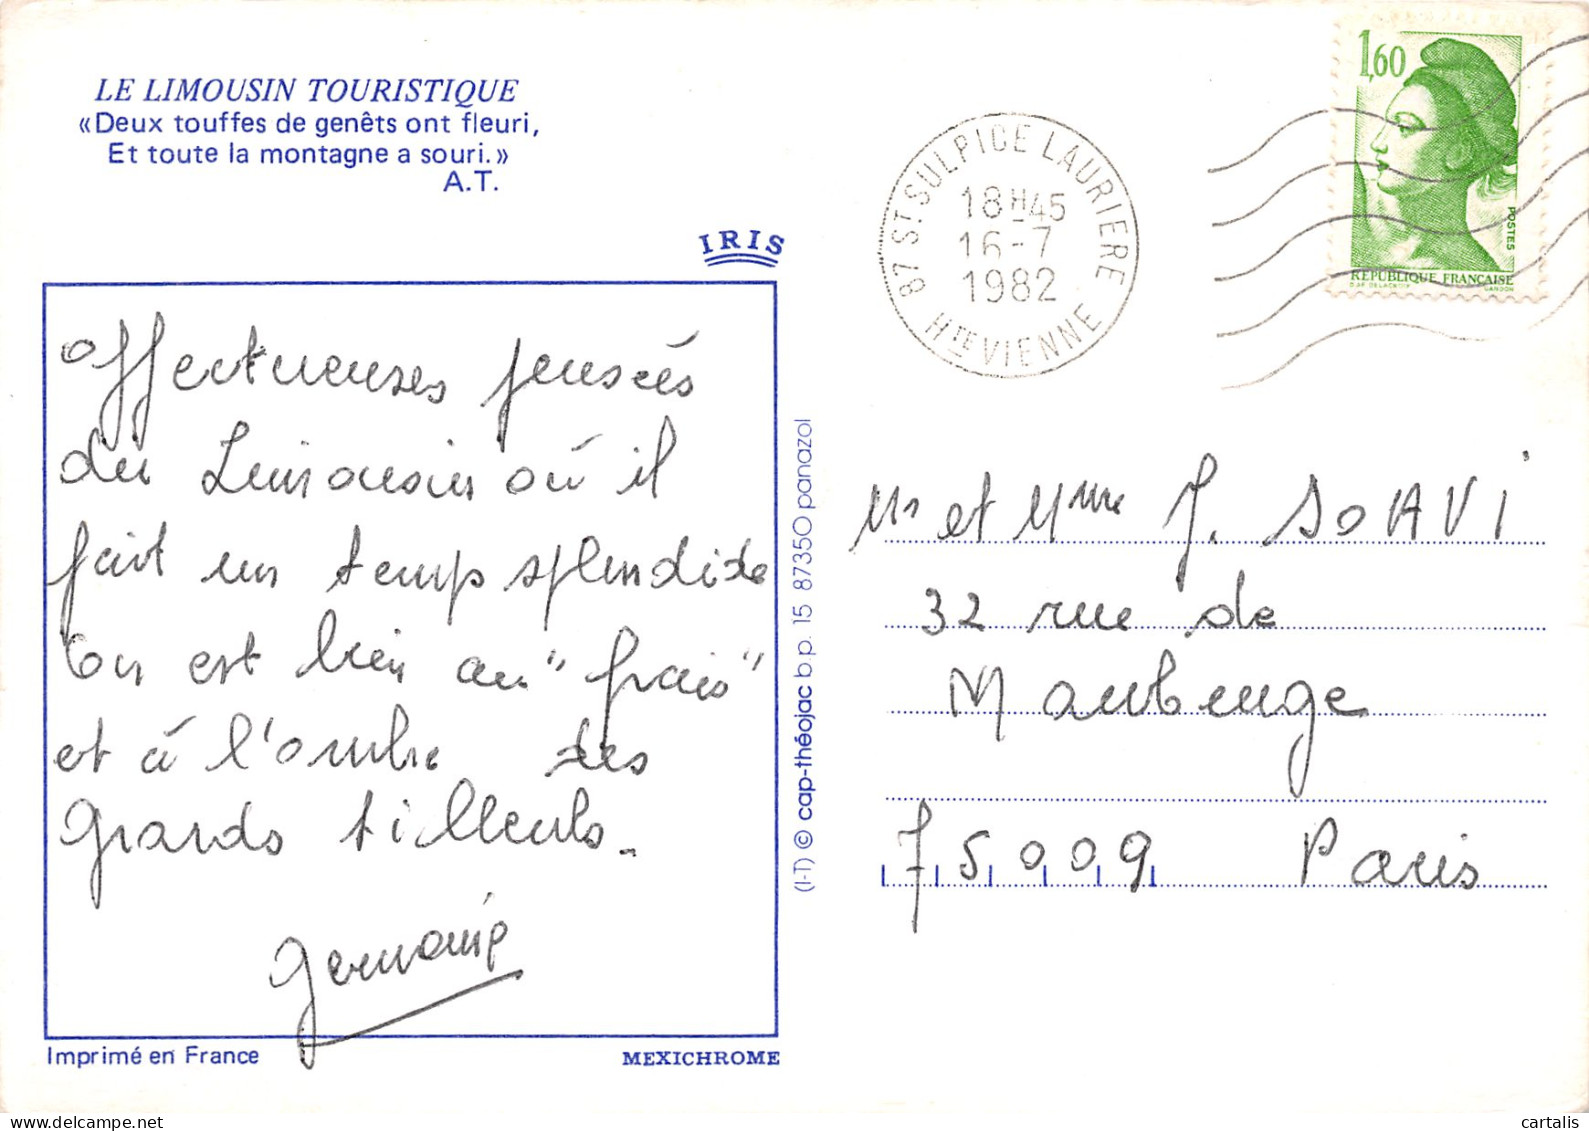 LE LIMOUSIN TOURISTIQUE
«Deux touffes de genêts ont fleuri,
Et toute la montagne a souri.»
A.T.
IRIS
Affectueuses pensées
du Limousin où il
fait un temps splendide
On est bien au "frais"
et à l'ombre des
grands tilleuls.
Germaine
Imprimé en France
MEXICHROME
(I-T) © cap-théojac b.p. 15 87350 panazol
87 ST. SULPICE LAURIERE
18H45
16-7
1982
HTE VIENNE
1,60
POSTES
REPUBLIQUE FRANÇAISE
D'AP. DELACROIX
GANDON
Mr et Mme J. SOAVI
32 rue de
Maubeuge
75009 Paris
cartalis